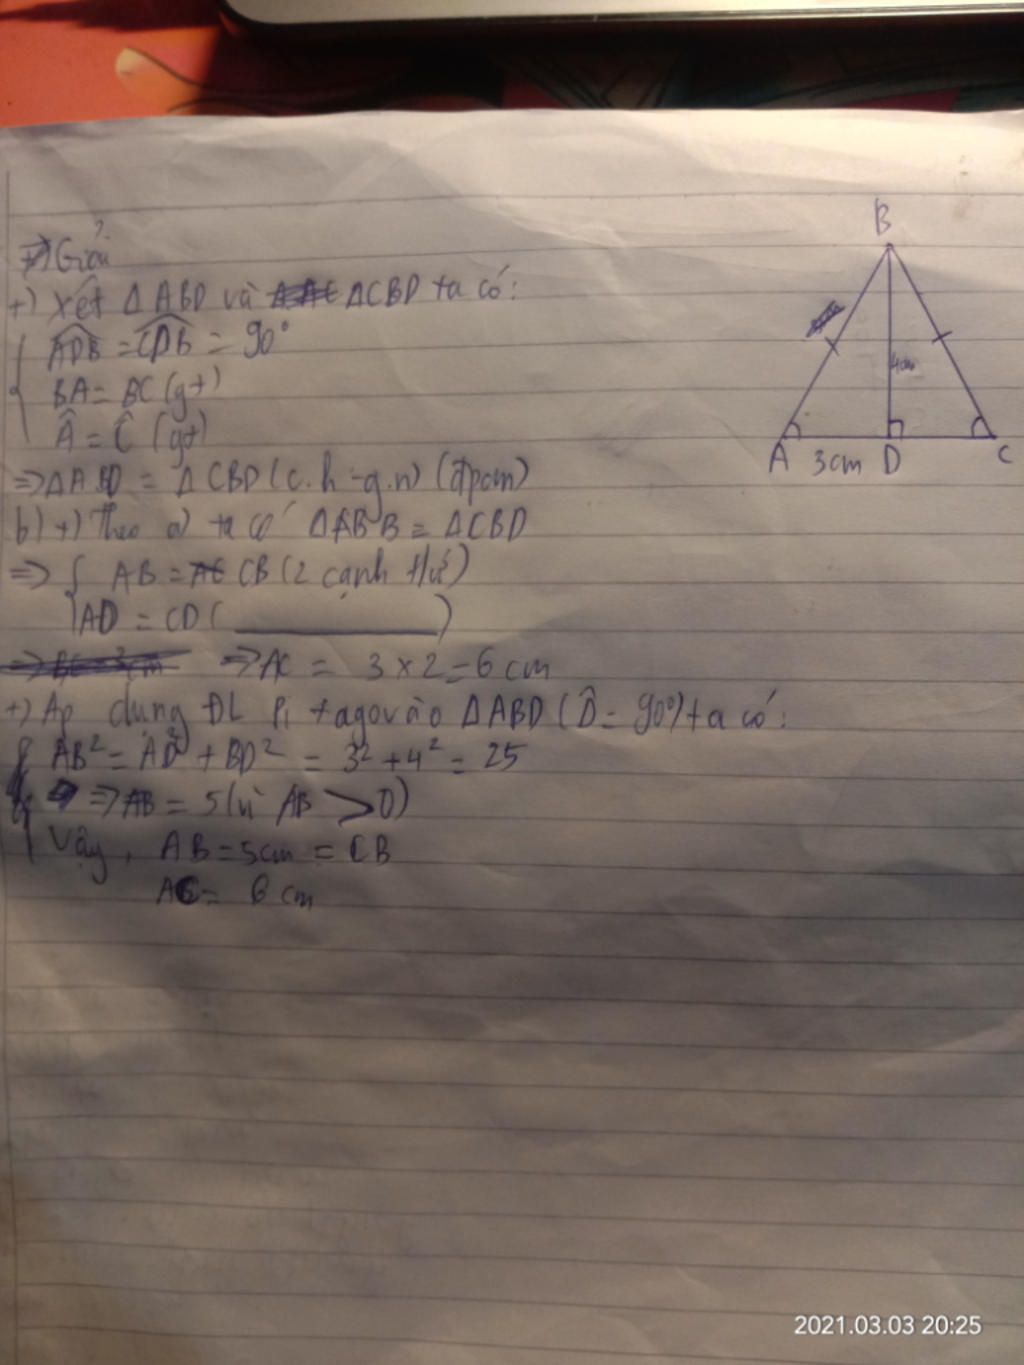 Giải
+) Xét Δ ABD và ΔCBD ta có:
ADB = CDB = 90°
BA = BC (gt)
Â = Ĉ (gt)
⇒ΔABD = ΔCBD (c.h-g.n) (đpcm)
b) +) Theo a) ta có ΔABB = ΔCBD
⇒ { AB = CB (2 cạnh t/ư)
AD = CD ( __________ )
⇒AC = 3 x 2 = 6 cm
+) Áp dụng ĐL Pi tago vào ΔABD (D̂ = 90°) ta có:
AB² = AD² + BD² = 3² + 4² = 25
⇒ AB = 5 (vì AB > 0)
Vậy, AB = 5cm = CB
AC = 6 cm
B
4cm
A 3cm D C
2021.03.03 20:25